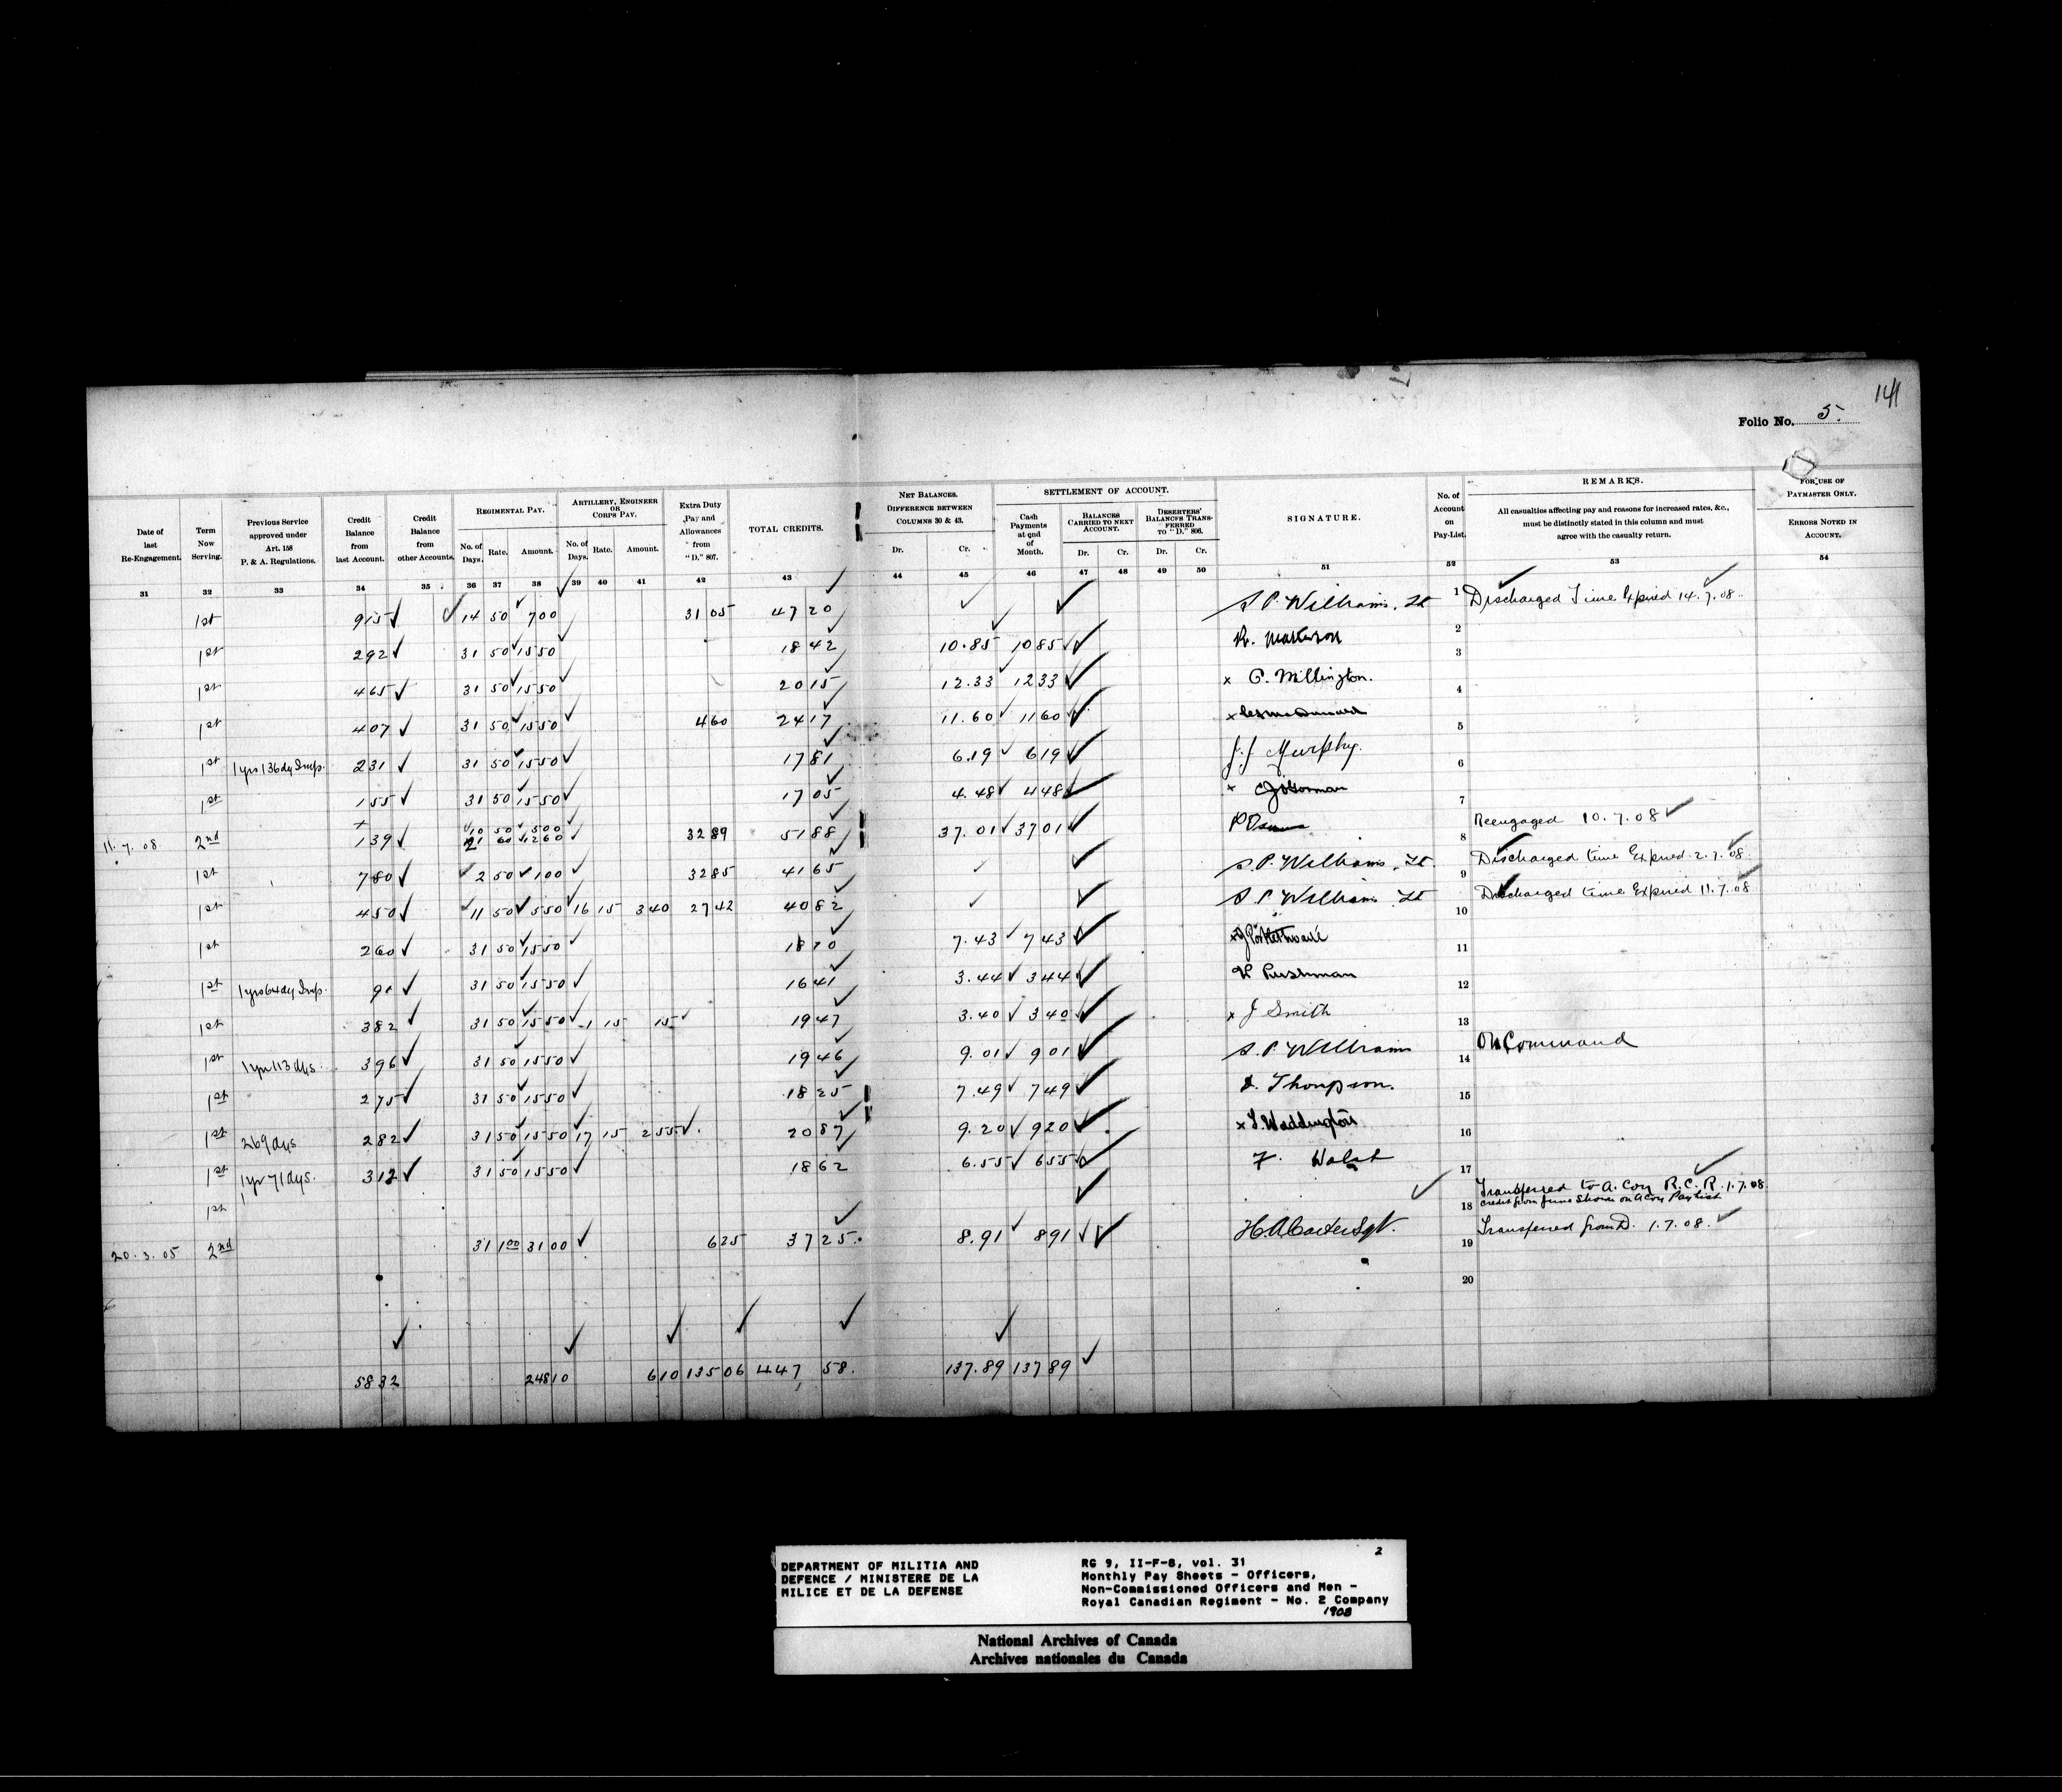 141
Folio No. 5.
Date of last Re-Engagement. Term Now Serving. Previous Service approved under Art. 158 P. & A. Regulations. Credit Balance from last Account. Credit Balance from other Accounts. REGIMENTAL PAY. No. of Days. Rate. Amount. ARTILLERY, ENGINEER OR CORPS PAY. No. of Days. Rate. Amount. Extra Duty Pay and Allowances from "D." 807. TOTAL CREDITS. NET BALANCES. DIFFERENCE BETWEEN COLUMNS 30 & 43. Dr. Cr. SETTLEMENT OF ACCOUNT. Cash Payments at end of Month. BALANCES CARRIED TO NEXT ACCOUNT. Dr. Cr. DESERTERS' BALANCES TRANSFERRED TO "D." 806. Dr. Cr. SIGNATURE. No. of Account on Pay-List. REMARKS. All casualties affecting pay and reasons for increased rates, &c., must be distinctly stated in this column and must agree with the casualty return. FOR USE OF PAYMASTER ONLY. ERRORS NOTED IN ACCOUNT.
31 32 33 34 35 36 37 38 39 40 41 42 43 44 45 46 47 48 49 50 51 52 53 54
1st 915 14 50 700 3105 4720 S. P. Williams, Lt 1 Discharged Time Expired 14.7.08.
1st 292 31 50 1550 1842 10.85 1085 2
1st 465 31 50 1550 2015 12.33 1233 x P. Millington. 3
1st 407 31 50 1550 460 2417 11.60 1160 x 4
1st 1yrs 136dy Imp. 231 31 50 1550 1781 6.19 619 J. J. Murphy. 5
1st 155 31 50 1550 1705 4.48 448 x 6
11.7.08 2nd 139 10 50 500 21 60 1260 3289 5188 37.01 3701 7 Reengaged 10.7.08
1st 780 2 50 100 3285 4165 S. P. Williams, Lt. 8 Discharged time Expired 2.7.08
1st 450 11 50 550 16 15 340 2742 4082 S. P. Williams Lt 9 Discharged time Expired 11.7.08
1st 260 31 50 1550 1810 7.43 743 10
1st 1yrs 64dy Imp. 91 31 50 1550 1641 3.44 344 Pushman 11
1st 382 31 50 1550 1 15 15 1947 3.40 340 x J Smith 12
1st 1yr 113 dys. 396 31 50 1550 1946 9.01 901 S. P. Williams 13 On Command
1st 275 31 50 1550 1825 7.49 749 Thompson. 14
1st 269 dys 282 31 50 1550 17 15 255 2087 9.20 920 x Waddington 15
1st 1yr 71 dys. 312 31 50 1550 1862 6.55 655 F. Walsh 16
1st 17 Transferred to A. Coy R.C.R. 1.7.08
credit from June shown on A Coy Paylist
20.3.05 2nd 31 1.00 3100 625 3725 8.91 891 H. A. Carter Sgt. 18 Transferred from D. 1.7.08.
19
20
5832 24810 610 13506 447 58. 137.89 13789
2
DEPARTMENT OF MILITIA AND
DEFENCE / MINISTERE DE LA
MILICE ET DE LA DEFENSE
RG 9, II-F-8, vol. 31
Monthly Pay Sheets - Officers,
Non-Commissioned Officers and Men -
Royal Canadian Regiment - No. 2 Company
1908
National Archives of Canada
Archives nationales du Canada